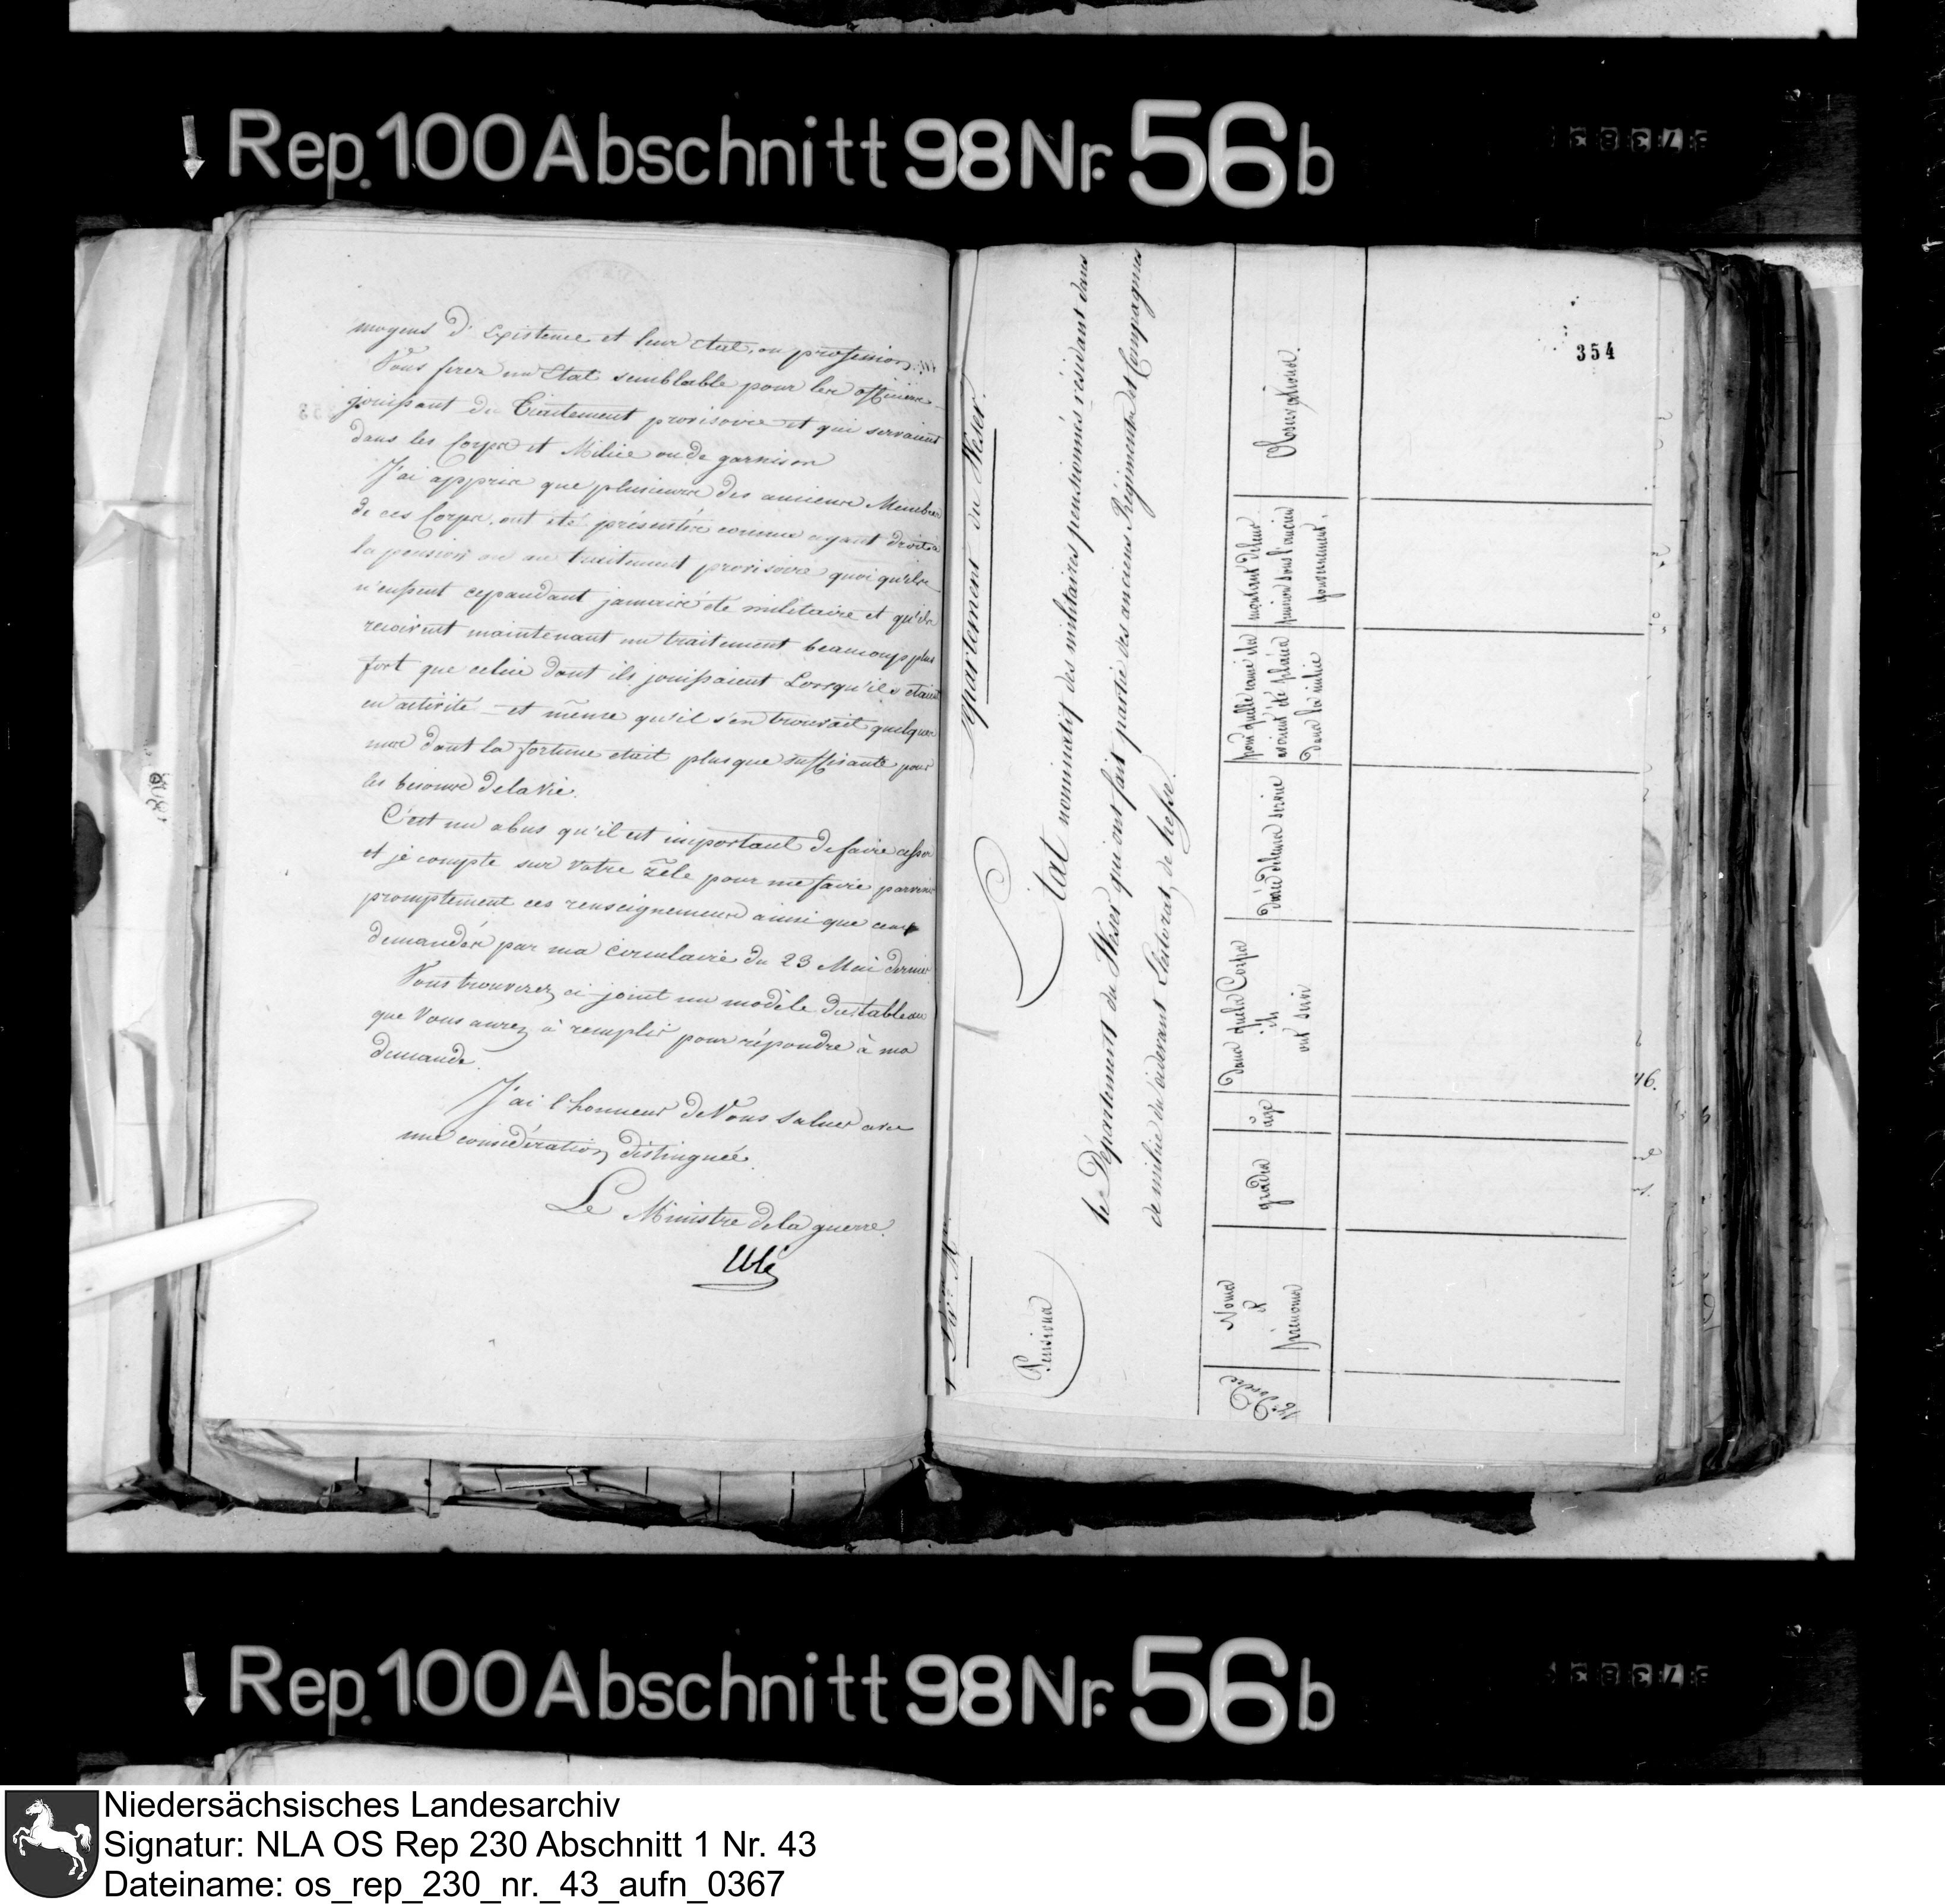 Rep. 100 Abschnitt 98 Nr. 56b
moyens d'Existence et leur état, ou profession.
Vous ferez un Etat semblable pour les officiers
jouissant du Traitement provisoire et qui servaient
dans les Corps et Milice ou de garnison
J'ai appris que plusieurs des anciens Membres
de ces Corps, ont été présentés comme ayant droit à
la pension ou au traitement provisoire quoiqu'ils
n'eussent cependant jamais été militaire et qu'ils
recoivent maintenant un traitement beaucoup plus
fort que celui dont ils jouissaient Lorsqu'ils étaient
en activité et même qu'il s'en trouvait quelques
uns dont la fortune etait plus que suffisante pour
les besoins de la vie.
C'est un abus qu'il est important de faire cesser
et je compte sur votre zêle pour me faire parvenir
promptement ces renseignemens ainsi que ceux
demandés par ma circulaire du 23 Mai dernier
Vous trouverez ci-joint un modèle du tableau
que Vous aurez à remplir pour répondre à ma
demande.
J'ai l'honneur de Vous saluer avec
une considération distinguée.
Le Ministre de la guerre.
Eblé
354
Département du Weser.
Pensions
Etat nominatif des militaires pensionnés résidant dans
le Département du Weser qui ont fait partie des anciens Régiments et Compagnies
de milice du cidevant Electorat de hesse.
Nos D'ordre
Noms
et
prenoms
grades
âge
Dans quels Corps
ils
ont servi
durée de leurs service
pour quelle cause ils
avoient été placés
dans la milice
montant de leur
pension sous l'ancien
gouvernement.
Observations.
46.
Rep. 100 Abschnitt 98 Nr. 56b
Niedersächsisches Landesarchiv
Signatur: NLA OS Rep 230 Abschnitt 1 Nr. 43
Dateiname: os_rep_230_nr._43_aufn_0367